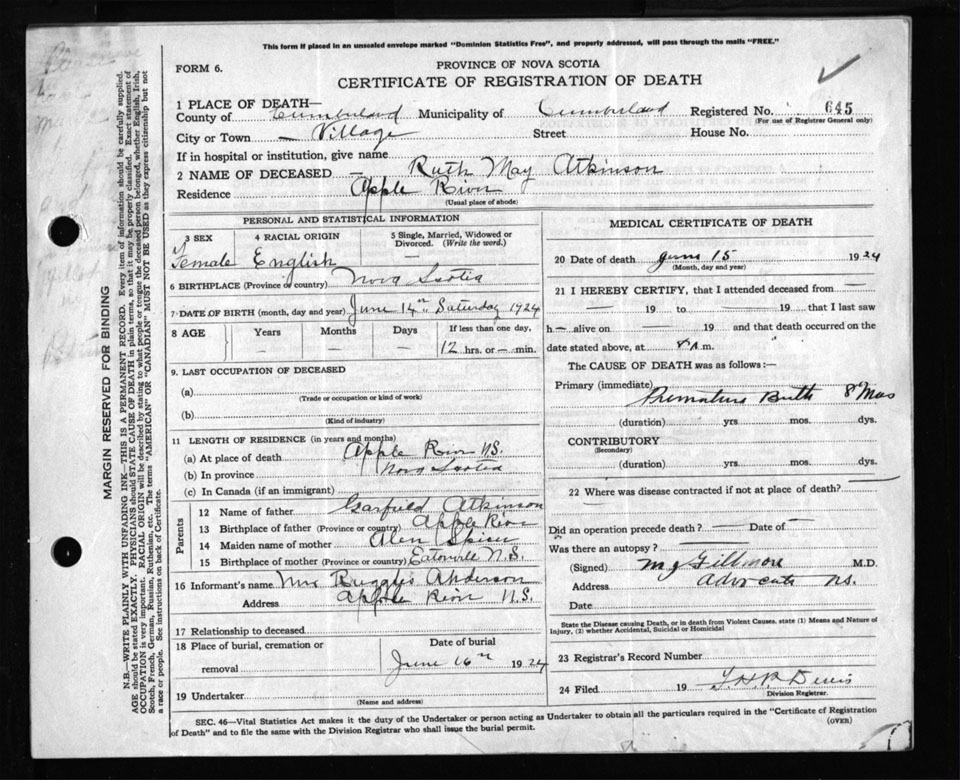 This form if placed in an unsealed envelope marked "Dominion Statistics Free", and properly addressed, will pass through the mails "FREE."
FORM 6.
PROVINCE OF NOVA SCOTIA
CERTIFICATE OF REGISTRATION OF DEATH
1 PLACE OF DEATH—
County of Cumberland Municipality of Cumberland Registered No. 645
(For use of Registrar General only)
City or Town — Village Street House No.
If in hospital or institution, give name
2 NAME OF DECEASED — Ruth May Atkinson
Residence Apple River
(Usual place of abode)
PERSONAL AND STATISTICAL INFORMATION
3 SEX 4 RACIAL ORIGIN 5 Single, Married, Widowed or Divorced. (Write the word.)
Female English —
6 BIRTHPLACE (Province or country) Nova Scotia
7 DATE OF BIRTH (month, day and year) June 14th Saturday 1924
8 AGE Years Months Days If less than one day,
— — — 12 hrs. or — min.
9. LAST OCCUPATION OF DECEASED
(a)
(Trade or occupation or kind of work)
(b)
(Kind of industry)
11 LENGTH OF RESIDENCE (in years and months)
(a) At place of death Apple River N.S.
(b) In province Nova Scotia
(c) In Canada (if an immigrant)
Parents
12 Name of father Garfield Atkinson
13 Birthplace of father (Province or country) Apple River
14 Maiden name of mother Spicer
15 Birthplace of mother (Province or country) Eatonville N.S.
16 Informant's name Mrs Ruggles Anderson
Address Apple River N.S.
17 Relationship to deceased
18 Place of burial, cremation or removal Date of burial
June 16th 1924
19 Undertaker
(Name and address)
MEDICAL CERTIFICATE OF DEATH
20 Date of death June 15 1924
(Month, day and year)
21 I HEREBY CERTIFY, that I attended deceased from —
— 19 to — 19 that I last saw
h— alive on — 19 and that death occurred on the
date stated above, at 8 A m.
The CAUSE OF DEATH was as follows:—
Primary (immediate) Premature Birth 8 Mos
(duration) yrs. mos. dys.
CONTRIBUTORY
(Secondary)
(duration) yrs. mos. dys.
22 Where was disease contracted if not at place of death? —
Did an operation precede death? — Date of —
Was there an autopsy? —
(Signed) Gillmore M.D.
Address Advocate N.S.
Date
State the Disease causing Death, or in death from Violent Causes, state (1) Means and Nature of
Injury, (2) whether Accidental, Suicidal or Homicidal
23 Registrar's Record Number
24 Filed 19
Division Registrar.
SEC. 46—Vital Statistics Act makes it the duty of the Undertaker or person acting as Undertaker to obtain all the particulars required in the "Certificate of Registration
of Death" and to file the same with the Division Registrar who shall issue the burial permit.
(OVER)
MARGIN RESERVED FOR BINDING
N.B.—WRITE PLAINLY WITH UNFADING INK—THIS IS A PERMANENT RECORD. Every item of information should be carefully supplied.
AGE should be stated EXACTLY. PHYSICIANS should STATE CAUSE OF DEATH in plain terms, so that it may be properly classified. Exact statement of
OCCUPATION is very important. RACIAL ORIGIN will be described by stating to what people or tongue the deceased person belonged, whether English, Irish,
Scotch, French, German, Russian, Ruthenian, etc. The terms "AMERICAN" OR "CANADIAN" MUST NOT BE USED as they express citizenship but not
a race or people. See instructions on back of Certificate.